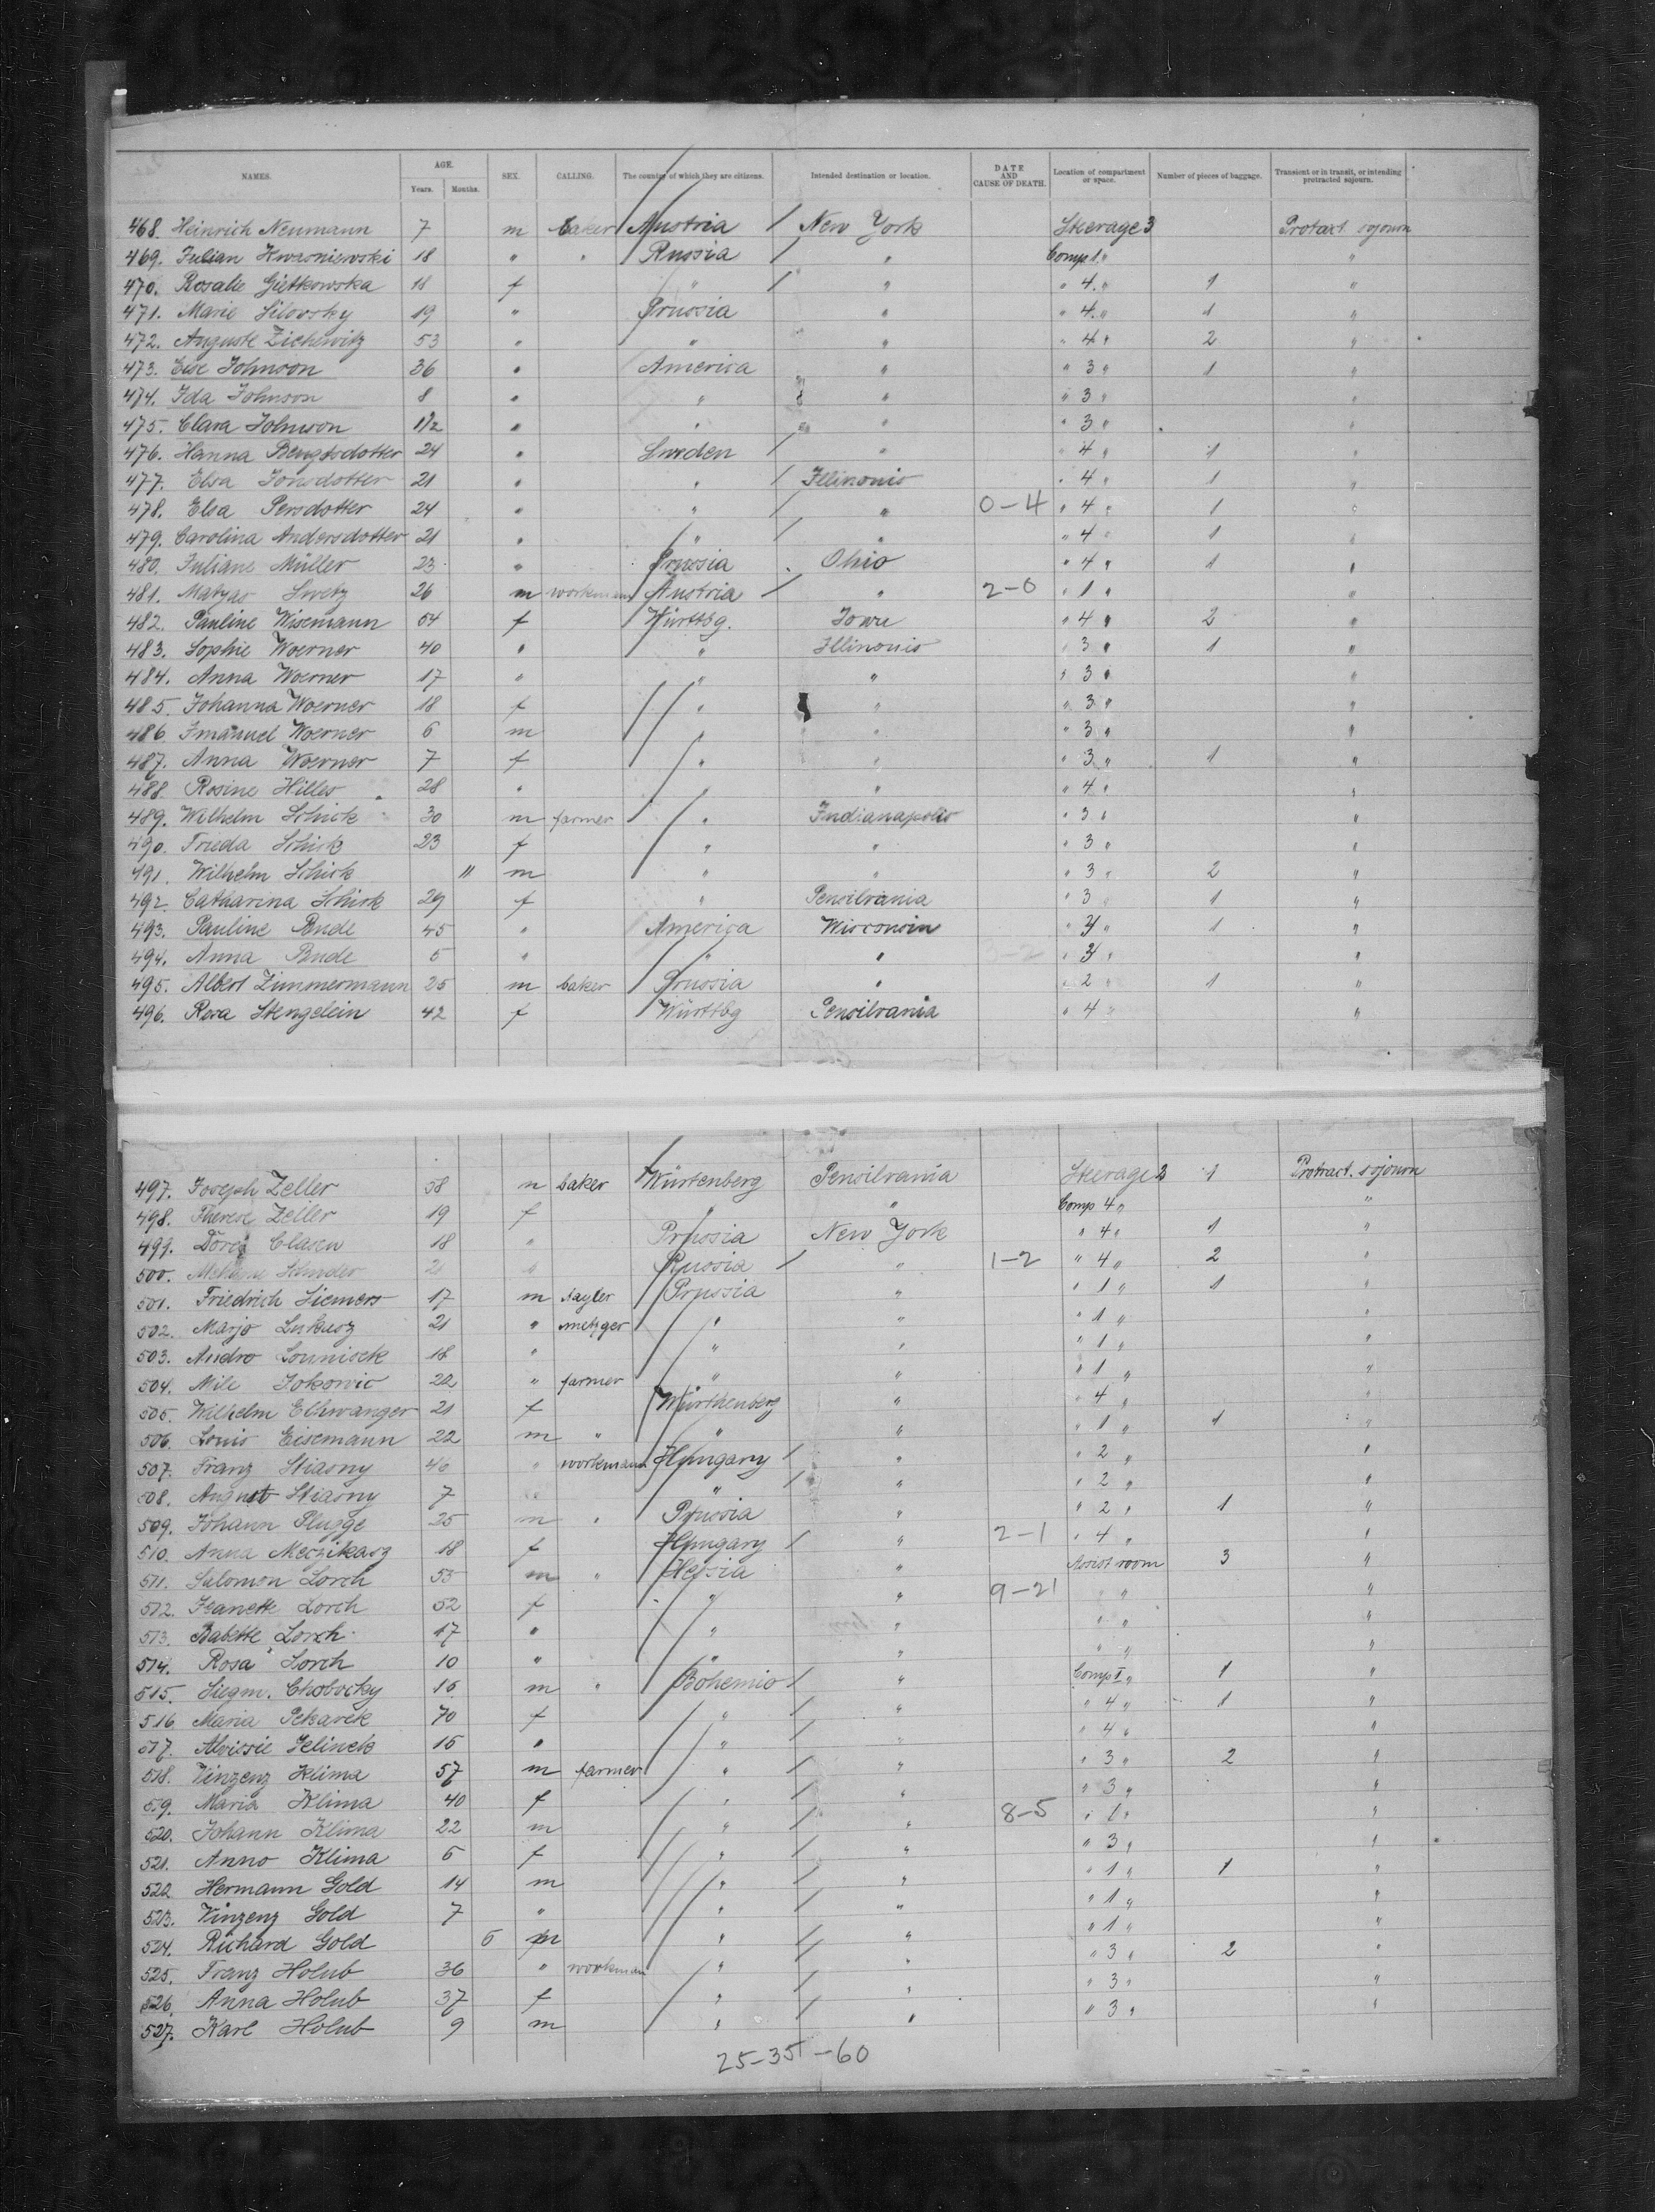 NAMES. AGE. SEX. CALLING. The country of which they are citizens. Intended destination or location. DATE AND CAUSE OF DEATH. Location of compartment or space. Number of pieces of baggage. Transient or in transit, or intending protracted sojourn.
Years. Months.
468. Heinrich Neumann 7 m baker Austria / New York Steerage 3 Protact sojourn
469. Julian Kwasniewski 18 " " Russia / " Comp 1 " "
470. Rosalie Gietkowska 18 f " / " " 4 " 1 "
471. Marie Silovsky 19 " Prussia " " 4 " 1 "
472. Auguste Zichewitz 53 " " " " 4 " 2 "
473. Else Johnson 36 " America " " 3 " 1 "
474. Ida Johnson 8 " " " " 3 " "
475. Clara Johnson 1 1/2 " " " " 3 " "
476. Hanna Bengtsdotter 24 " Sweden / " " 4 " 1 "
477. Elsa Jonsdotter 21 " " / Illinonis " 4 " 1 "
478. Elsa Persdotter 24 " " / " 0-4 " 4 " 1 "
479. Carolina Andersdotter 21 " " / " " 4 " 1 "
480. Juliane Müller 23 " Prussia Ohio " 4 " 1 "
481. Matyas Swetz 26 m workmann Austria / " 2-0 " 1 " "
482. Pauline Wisemann 54 f Württbg. Iowa " 4 " 2 "
483. Sophie Woerner 40 " " Illinonis " 3 " 1 "
484. Anna Woerner 17 " " " " 3 " "
485. Johanna Woerner 18 f " " " 3 " "
486. Imanuel Woerner 6 m " " " 3 " "
487. Anna Woerner 7 f " " " 3 " 1 "
488. Rosine Hiller 28 " " " " 4 " "
489. Wilhelm Schick 30 m farmer " Indianapolis " 3 " "
490. Frieda Schick 23 f " " " 3 " "
491. Wilhelm Schick 11 m " " " 3 " 2 "
492. Catharina Schick 29 f " Pensilvania " 3 " 1 "
493. Pauline Bude 45 " America Wisconsin " 3 " 1 "
494. Anna Bude 5 " " " " 3 " "
495. Albert Zimmermann 25 m baker Prussia " " 2 " 1 "
496. Rosa Stengelein 42 f Württbg Pensilvania " 4 " "
497. Joseph Zeller 38 m baker Würtenberg Pensilvania Steerage 3 1 Protract. sojourn
498. Therese Zeller 19 f " " Comp 4 " "
499. Doris Clasen 18 " Prussia New York " 4 " 1 "
500. Schroder " Russia / " 1-2 " 4 " 2 "
501. Friedrich Siemers 17 m tayler Prussia " " 1 " 1 "
502. Marjo Lukusz 21 " metzger " " " 1 " "
503. Andro Lounisek 18 " " " " 1 " "
504. Mile Jokovic 22 " farmer " " " 1 " "
505. Wilhelm Ellwanger 21 f Würthenberg " " 4 " "
506. Louis Eisemann 22 m " " " " 1 " 1 "
507. Franz Stiasny 46 " workmann Hungary / " " 2 " "
508. August Stiasny 7 " / " " 2 " "
509. Johann Plugge 25 m " Prussia " " 2 " 1 "
510. Anna Meczikasz 18 f Hungary / " 2-1 " 4 " "
511. Salomon Lorch 55 m " Hessia " Assist room 3 "
512. Jeanette Lorch 52 f " " 9-21 " "
513. Babette Lorch 17 " " " " " "
514. Rosa Lorch 10 " " " " " "
515. Siegm. Chobocky 16 m " Bohemia / " Comp I " 1 "
516. Maria Pekarek 70 f " / " " 4 " 1 "
517. Aloisie Jelinek 16 " " / " " 4 " "
518. Vinzenz Klima 57 m farmer " / " " 3 " 2 "
519. Maria Klima 40 f " / " " 3 " "
520. Johann Klima 22 m " / " 8-5 " 1 " "
521. Anno Klima 6 f " / " " 3 " "
522. Hermann Gold 14 m " / " " 1 " 1 "
523. Vinzenz Gold 7 " " / " " 1 " "
524. Richard Gold 6 m " / " " 1 " "
525. Franz Holub 36 " workman " / " " 3 " 2 "
526. Anna Holub 37 f " / " " 3 " "
527. Karl Holub 9 m " / " " 3 " "
25-35-60